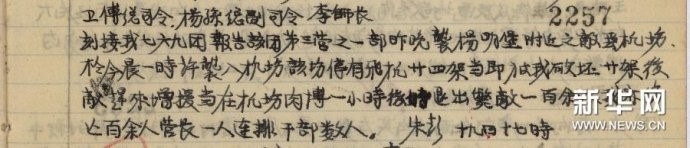 卫傅总司令、杨孙总副司令、李师长
2257
刻接我七六九团报告该团第三营之一部昨晚袭杨明堡附近之敌飞机坊，
于今晨一时许袭入机坊该坊停有飞机廿四架当即被我破坏廿架后
敌 来增援当在机坊肉搏一小时 退出毙敌一百余
亡百余人营长一人连排干部数人。朱彭 十九日十七时
新华网
WWW.NEWS.CN